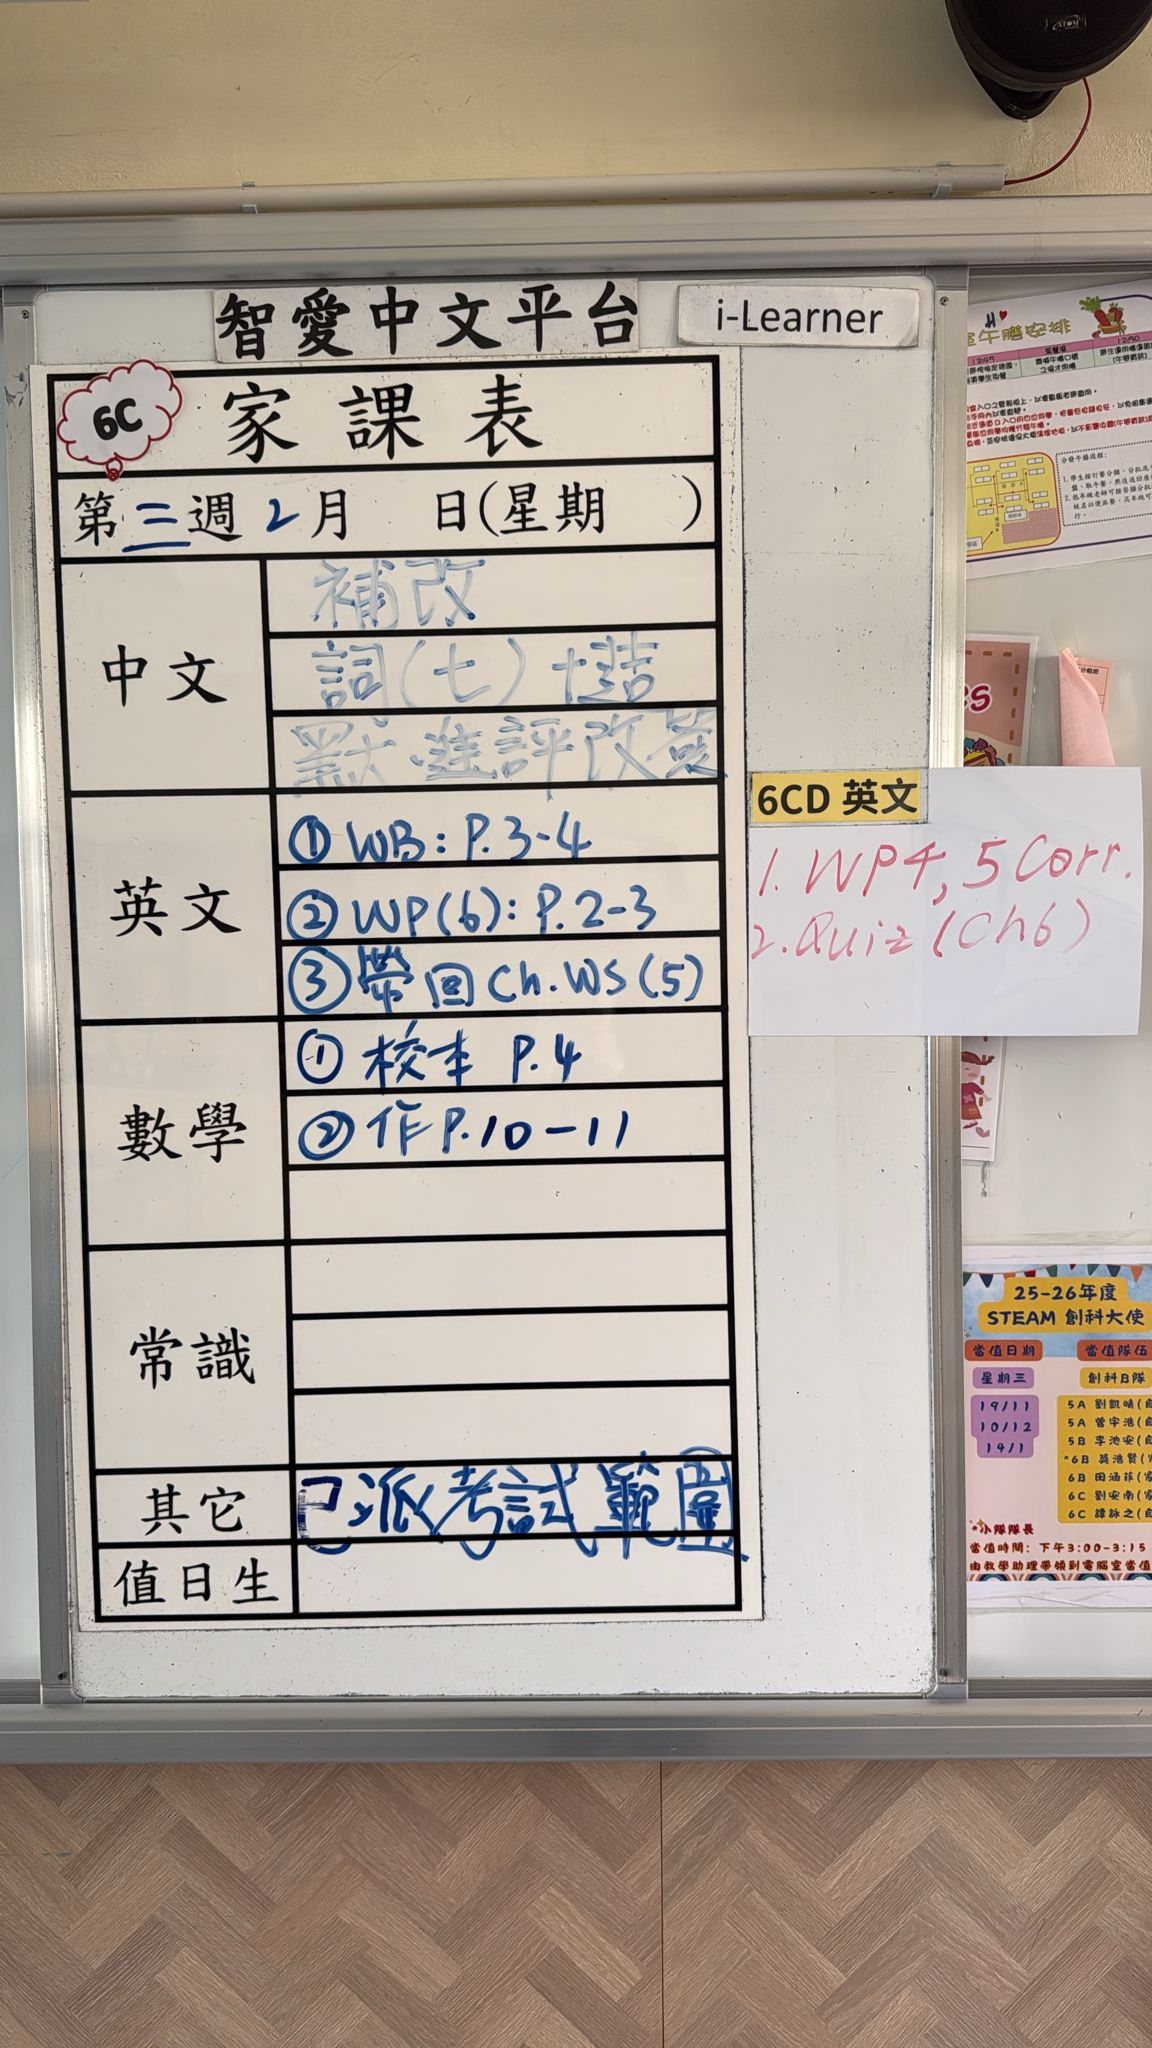 ATOM
智愛中文平台
i-Learner
6C
家課表
第三週 2月 日(星期 )
中文
補改
詞(七)
默.進評改
英文
① WB: P.3-4
② WP(6): P.2-3
③ 帶回 Ch.WS(5)
數學
① 校本 P.4
② 作P.10-11
常識
其它
已派考試範圍
值日生
6CD 英文
1. WP4, 5 Corr.
2. Quiz (Ch6)
午膳安排
12:45
12:50
分發午膳流程:
25-26年度
STEAM 創科大使
當值日期
當值隊伍
星期三
創科B隊
19/11
10/12
14/1
5A 劉凱晴
5A 曾宇浩
5B 李池安
*6B 莫浩賢
6B 田涵菲
6C 劉安南
6C 譚詠之
*小隊隊長
當值時間: 下午3:00-3:15
由教學助理帶領到電腦室當值